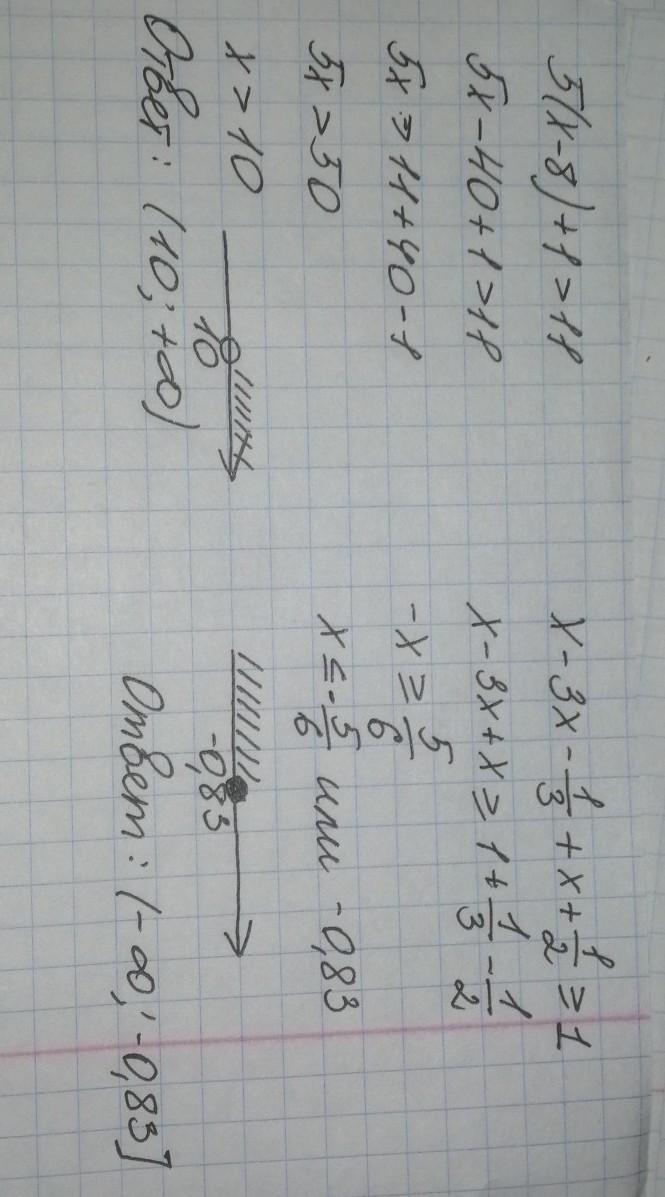 5(x-8)+1>11
5x-40+1>11
5x>11+40-1
5x>50
x>10
10
Ответ: (10;+∞)
x-3x-1/3+x+1/2≥1
x-3x+x≥1+1/3-1/2
-x≥5/6
x≤-5/6 или -0,83
-0,83
Ответ: (-∞;-0,83]